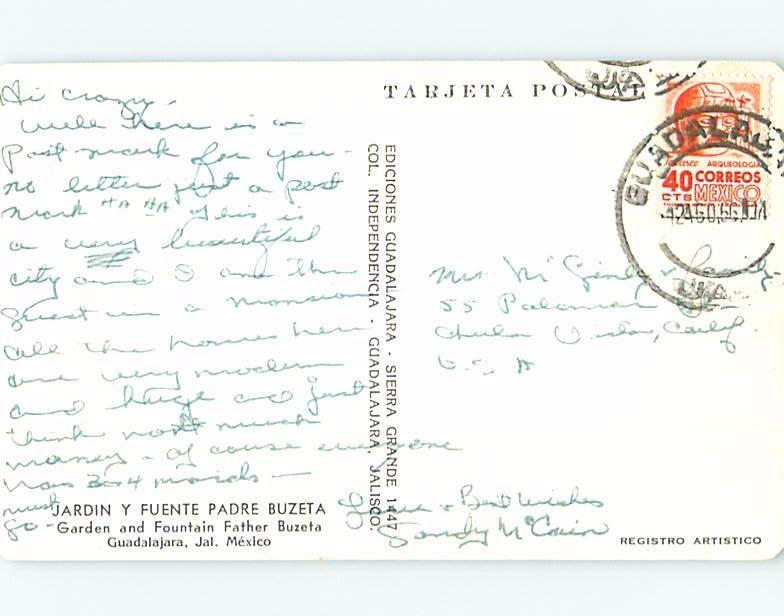 TARJETA POSTAL
Hi crazy,
Well here is a
Post-mark for you -
no letter just a post
mark HA HA This is
a very beautiful
city and I am the
guest in a mansion
all the homes here
are very modern
and huge and just
think not much
money - of couse everyone
has 3or4 maids -
must
go -
Love & Best Wishes
Sandy McCain
JARDIN Y FUENTE PADRE BUZETA
Garden and Fountain Father Buzeta
Guadalajara, Jal. México
EDICIONES GUADALAJARA - SIERRA GRANDE 1447
COL. INDEPENDENCIA - GUADALAJARA, JALISCO.
ARQUEOLOGIA
40 CORREOS
CTS MEXICO
GUADALAJARA
Mrs. Mc & Family
55 Palomar
Chula Vista, Calif.
U.S.A
REGISTRO ARTISTICO